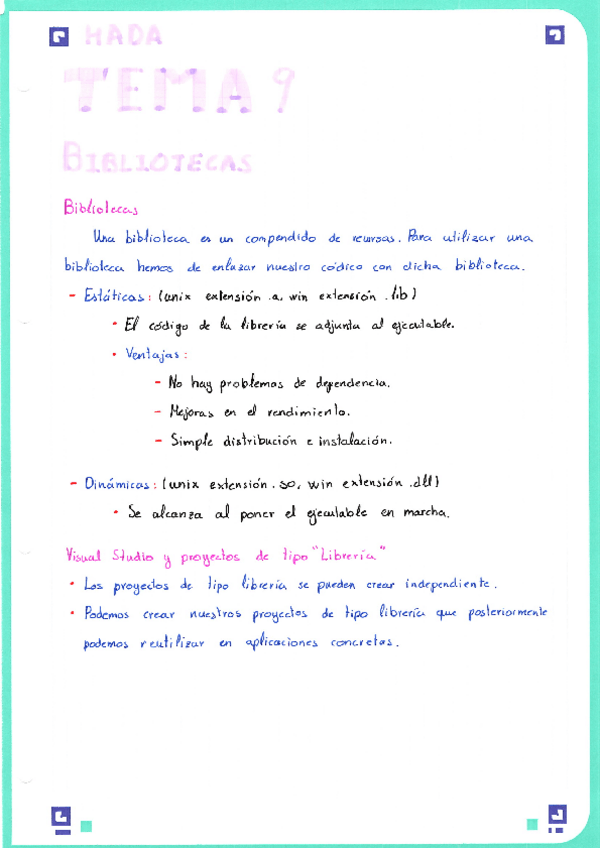 HADA
TEMA 9
BIBLIOTECAS
Bibliotecas
Una biblioteca es un compendido de recursas. Para utilizar una
biblioteca hemos de enlazar nuestro códico con dicha biblioteca.
- Estáticas: (unix extensión .a, win extensión .lib)
• El código de la librería se adjunta al ejecutable.
• Ventajas:
- No hay problemas de dependencia.
- Mejoras en el rendimiento.
- Simple distribución e instalación.
- Dinámicas: (unix extensión .so, win extensión .dll)
• Se alcanza al poner el ejecutable en marcha.
Visual Studio y proyectos de tipo "Librería"
• Los proyectos de tipo librería se pueden crear independiente.
• Podemos crear nuestros proyectos de tipo librería que posteriormente
podemos reutilizar en aplicaciones concretas.